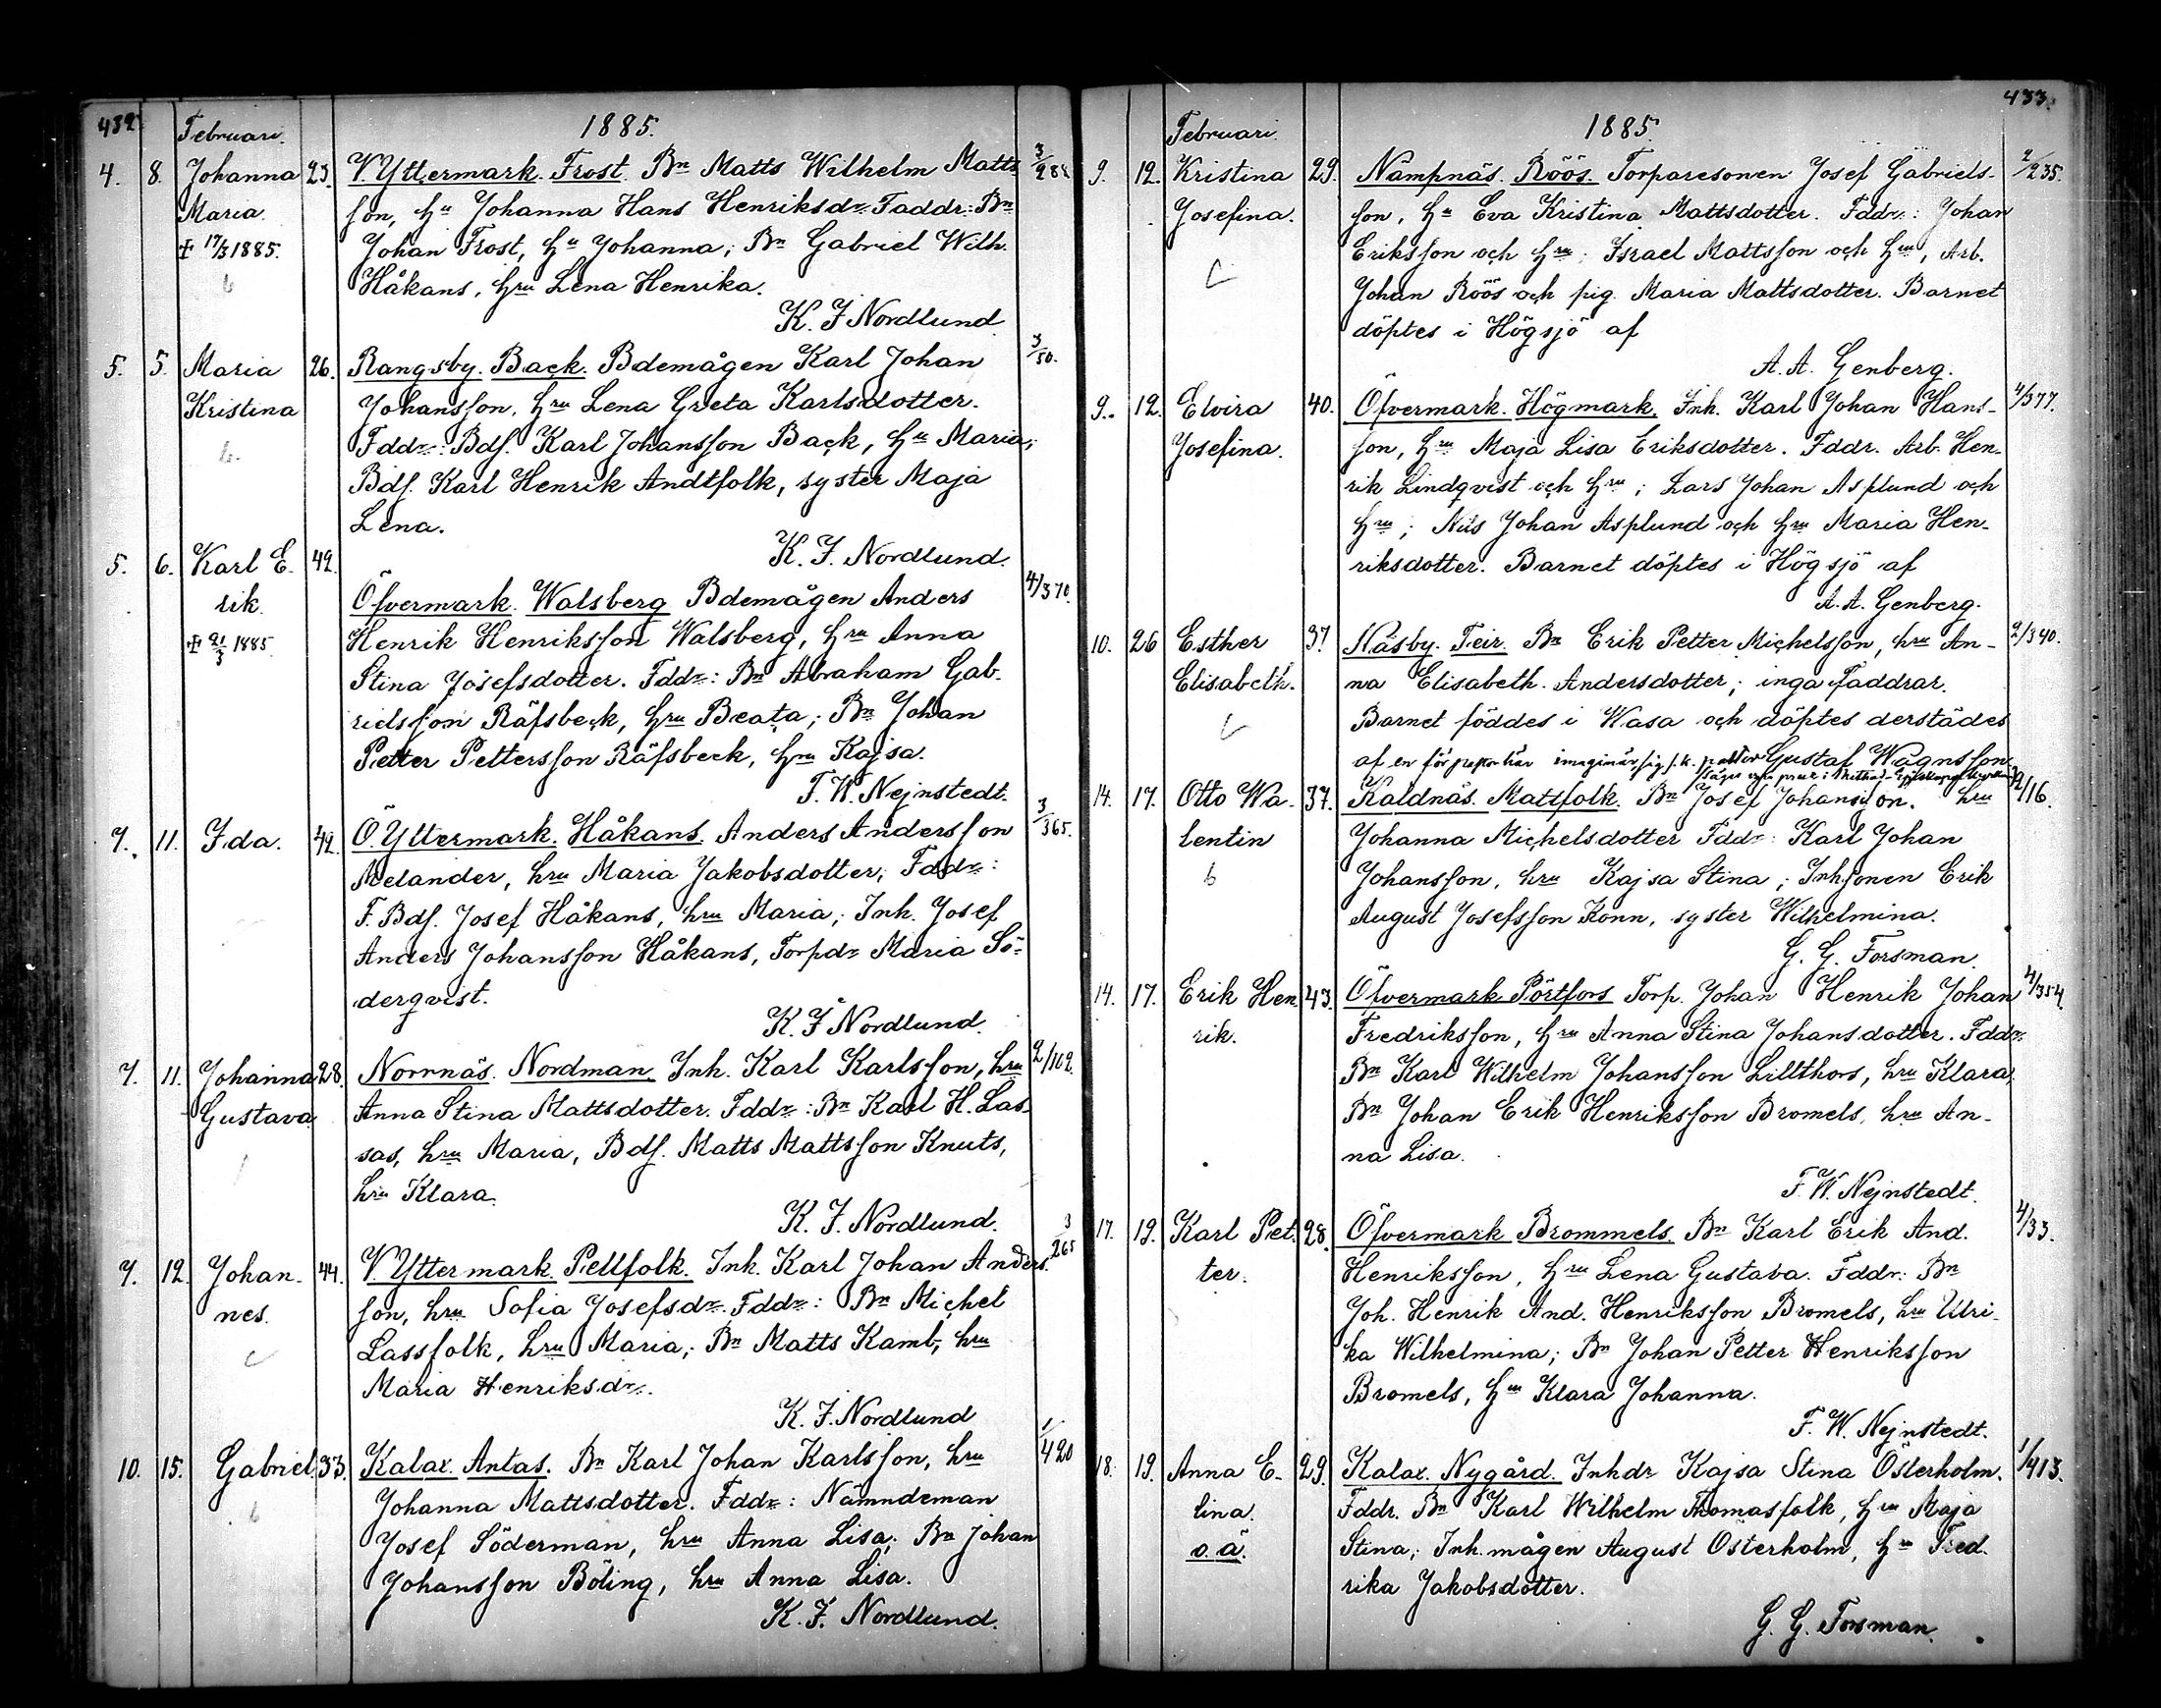 432
Februari. 1885.
4. 8. Johanna 23. V. Yttermark. Frost. Bn Matts Wilhelm Matts 3/288
Maria. son, hu Johanna Hans Henriksdr. Faddr: Bn
✝ 17/3 1885. Johan Frost, hu Johanna; Bn Gabriel Wilh.
Håkans, hru Lena Henrika.
K. F. Nordlund
5. 5. Maria 26. Rangsby. Back. Bdemågen Karl Johan 3/50.
Kristina Johansson, hru Lena Greta Karlsdotter.
Fddr: Bdf. Karl Johansson Back, hu Maria;
Bdf. Karl Henrik Andtfolk, syster Maja
Lena.
K. F. Nordlund.
5. 6. Karl E- 42.
rik. Öfvermark. Walsberg Bdemågen Anders 4/370.
✝ 21/3 1885 Henrik Henriksson Walsberg, hru Anna
Stina Josefsdotter. Fddr: Bn Abraham Gab-
rielsson Räfsbeck, hru Beata; Bn Johan
Petter Pettersson Räfsbeck, hru Kajsa.
F. W. Nejnstedt.
7. 11. Ida. 42. Ö. Yttermark. Håkans. Anders Andersson 3/365.
Melander, hru Maria Jakobsdotter; Fddr:
F. Bdf. Josef Håkans, hru Maria; Inh. Josef
Anders Johansson Håkans, Torpdr Maria Sö-
derqvist.
K. F. Nordlund.
7. 11. Johanna 28. Norrnäs. Nordman. Inh. Karl Karlsson, hru 2/102.
Gustava Anna Stina Mattsdotter. Fddr: Bn Karl H. Las-
sas, hru Maria, Bdf. Matts Mattsson Knuts,
hru Klara.
K. F. Nordlund.
7. 12. Johan- 44. V. Yttermark. Pellfolk. Inh. Karl Johan Anders- 3/265
nes. son, hru Sofia Josefsdr. Fddr: Bn Michel
Lassfolk, hru Maria; Bn Matts Kamb, hru
Maria Henriksdr.
K. F. Nordlund
10. 15. Gabriel. 33. Kalax. Antas. Bn Karl Johan Karlsson, hru 1/420
Johanna Mattsdotter. Fddr: Nämndeman
Josef Söderman, hru Anna Lisa; Bn Johan
Johansson Böling, hru Anna Lisa.
K. F. Nordlund.
433.
Februari. 1885
9. 12. Kristina 29. Nämpnäs. Röös. Torparesonen Josef Gabriels- 2/235.
Josefina. son, hu Eva Kristina Mattsdotter. Fddr: Johan
Eriksson och hru; Israel Mattsson och hru, Arb.
Johan Röös och pig. Maria Mattsdotter. Barnet
döptes i Högsjö af
A. A. Genberg.
9. 12. Elvira 40. Öfvermark. Högmark. Inh. Karl Johan Hans- 4/377.
Josefina. son, hru Maja Lisa Eriksdotter. Fddr. Arb. Hen-
rik Lindqvist och hru; Lars Johan Asplund och
hru; Nils Johan Asplund och hru Maria Hen-
riksdotter. Barnet döptes i Högsjö af
A. A. Genberg.
10. 26 Esther 37 Näsby. Teir. Bn Erik Petter Michelsson, hru An- 2/340.
Elisabeth. na Elisabeth Andersdotter; inga faddrar.
Barnet föddes i Wasa och döptes derstädes
af en för imaginär, Gustaf Wagnsson
14. 17. Otto Wa- 37. Kaldnäs. Mattfolk. Bn Josef Johansson. hru 2/16.
lentin Johanna Michelsdotter Fddr: Karl Johan
Johansson, hru Kajsa Stina; Inhsonen Erik
August Josefsson Konn, syster Wilhelmina.
G. G. Forsman.
14. 17. Erik Hen 43. Öfvermark Pörtfors Torp. Johan Henrik Johan 4/354
rik. Fredriksson, hru Anna Stina Johansdotter. Fddr.
Bn Karl Wilhelm Johansson Lillthors, hru Klara;
Bn Johan Erik Henriksson Bromels, hru An-
na Lisa.
F. W. Nejnstedt.
17. 19. Karl Pet- 28. Öfvermark Brommels. Bn Karl Erik And. 4/33.
ter. Henriksson, hru Lena Gustava. Fddr: Bn
Joh. Henrik And. Henriksson Bromels, hru Ulri-
ka Wilhelmina; Bn Johan Petter Henriksson
Bromels, hru Klara Johanna.
F. W. Nejnstedt.
18. 19. Anna E- 29. Kalax. Nygård. Inhdr Kajsa Stina Österholm. 1/413.
lina. Fddr. Bn Karl Wilhelm Thomasfolk, hru Maja
o.ä. Stina; Inh. mågen August Österholm, hu Fred-
rika Jakobsdotter.
G. G. Forsman.